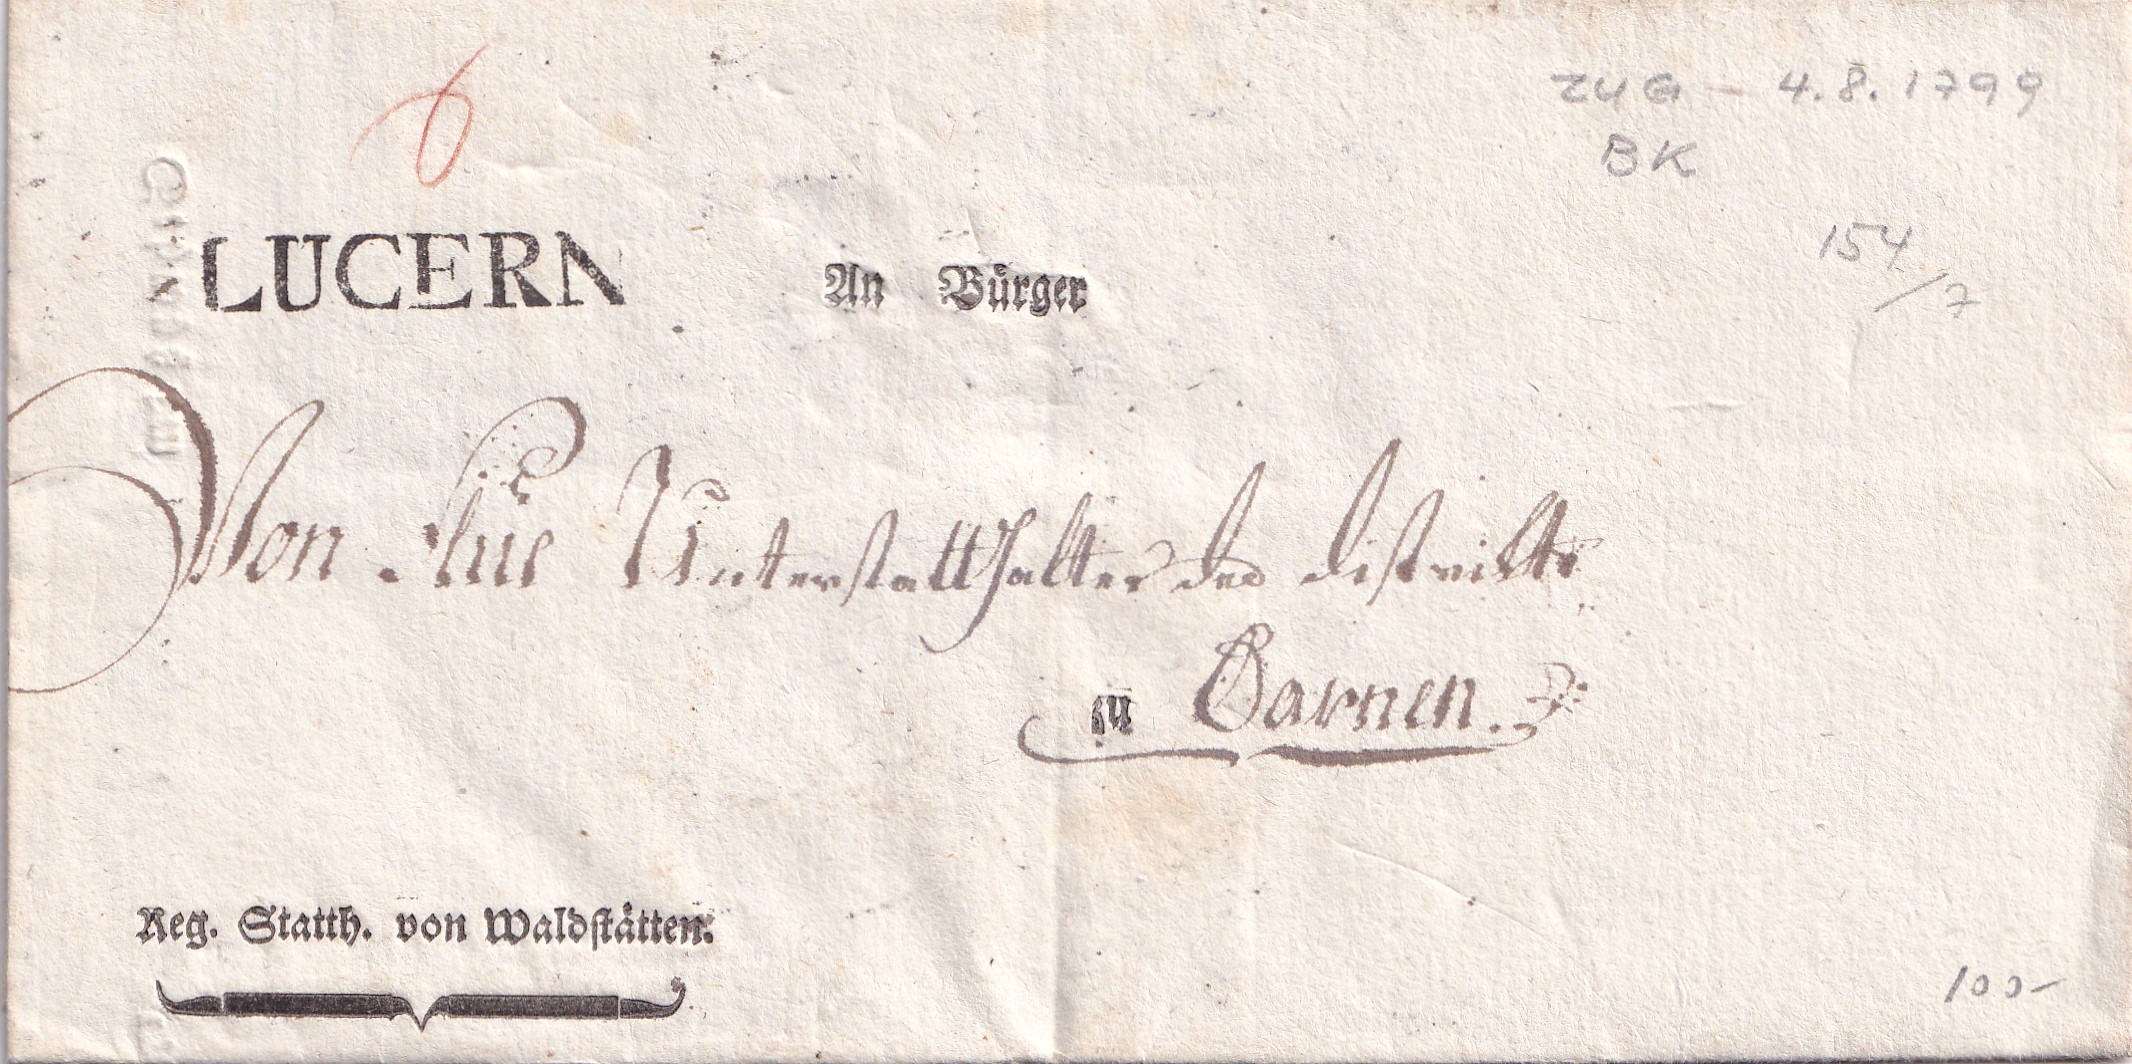 6
ZUG - 4.8.1799
BK
154/7
LUCERN
An Bürger
Von Flüe Unterstatthalter des distrikts
zu Sarnen.
Reg. Statth. von Waldstätten.
100-